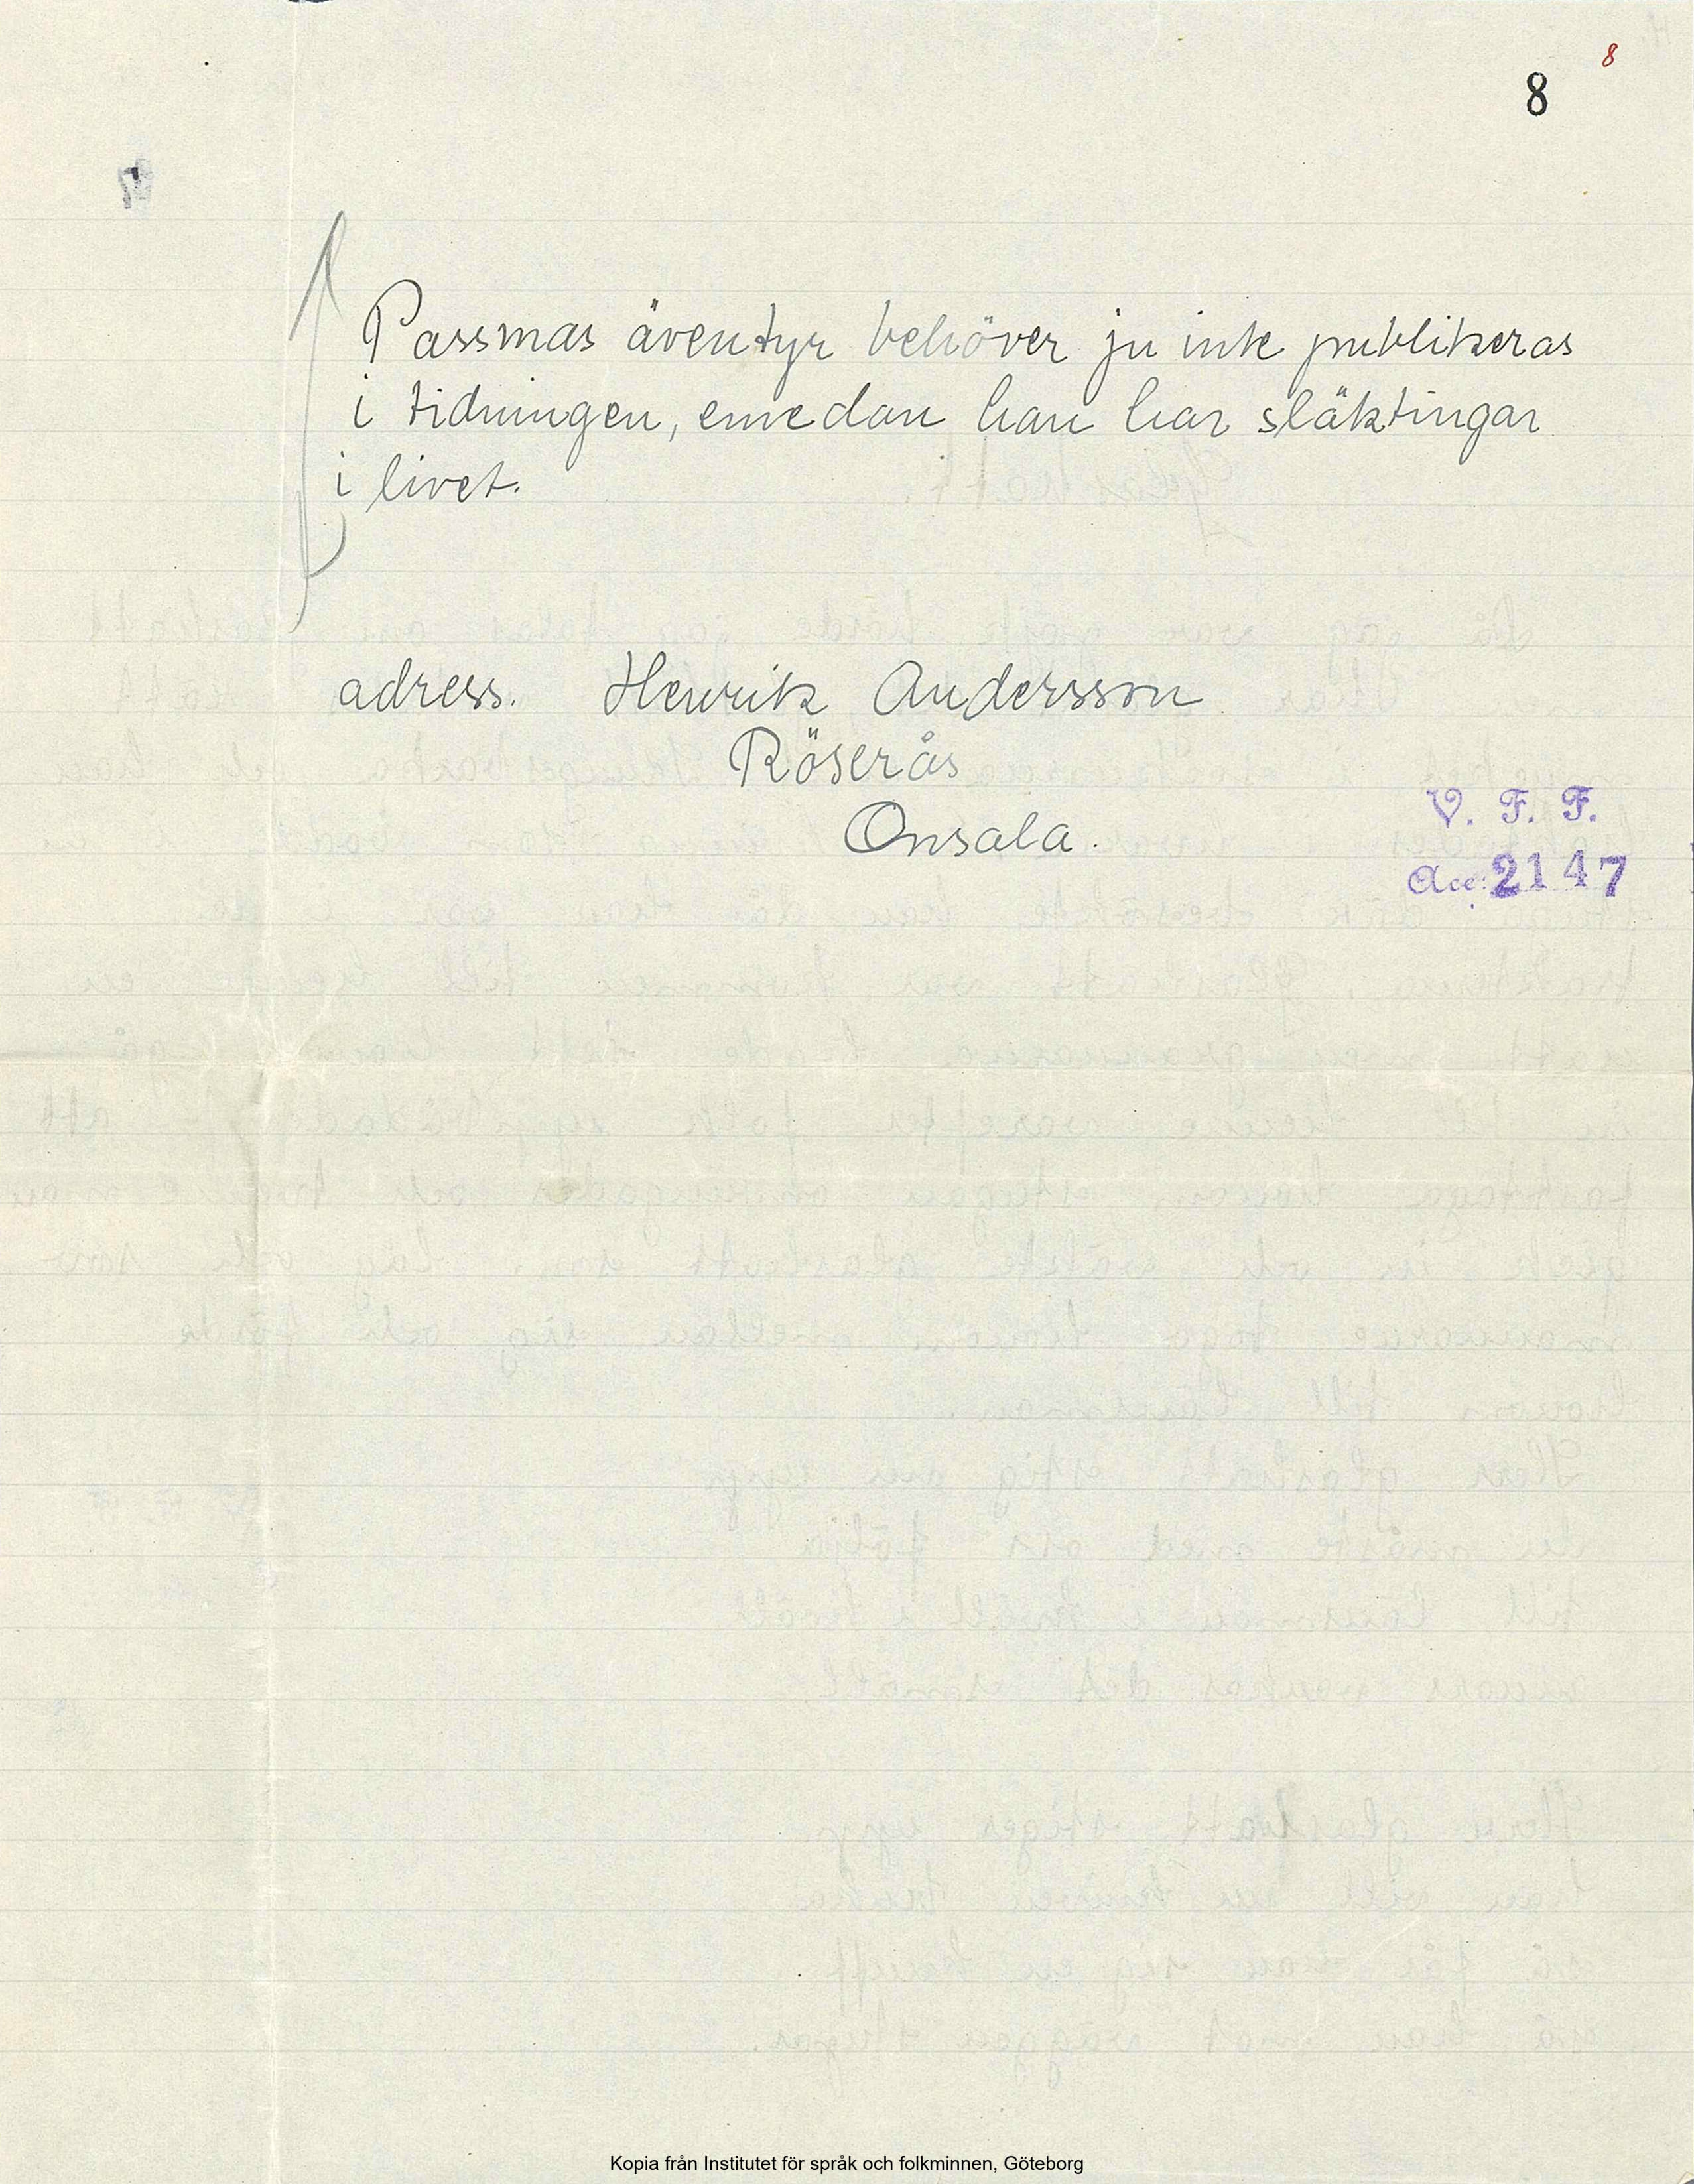 8
8
Passmas äventyr behöver ju inte publikeras
i tidningen, emedan han har släktingar
i livet.
adress. Henrik Andersson
Röserås
Onsala.
V. F. F.
Acc: 2147
Kopia från Institutet för språk och folkminnen, Göteborg